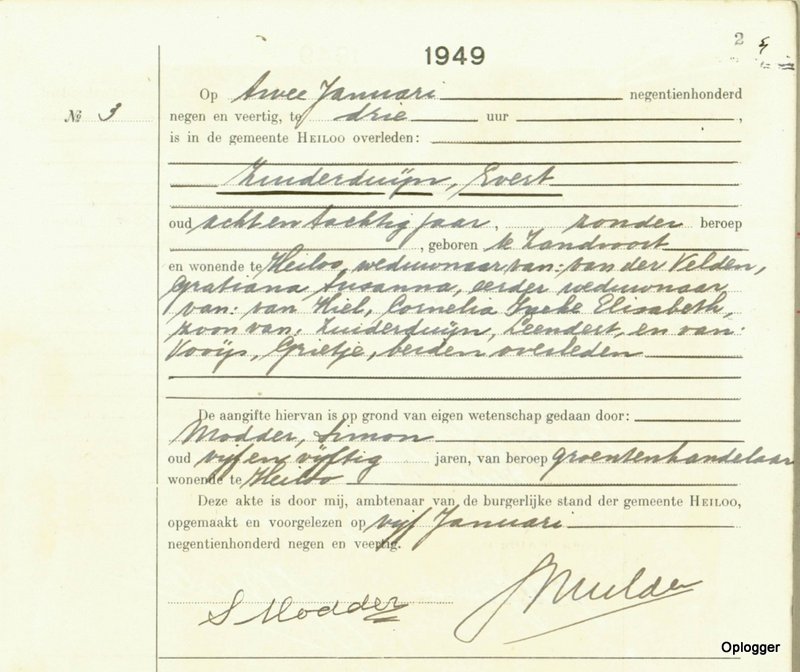 2
1949
Op twee Januari negentienhonderd
№ 3
negen en veertig, te drie uur ,
is in de gemeente HEILOO overleden:
Zuiderduijn, Evert
oud acht en tachtig jaar, zonder beroep
, geboren te Zandvoort
en wonende te Heiloo, weduwnaar van: van der Velden,
Gratiana Susanna, eerder weduwnaar
van: van Kiel, Cornelia Elisabeth,
zoon van: Zuiderduijn, Leendert, en van:
Vooijs, Grietje, beiden overleden
De aangifte hiervan is op grond van eigen wetenschap gedaan door:
Modder, Simon
oud vijf en vijftig jaren, van beroep groentenhandelaar
wonende te Heiloo
Deze akte is door mij, ambtenaar van de burgerlijke stand der gemeente HEILOO,
opgemaakt en voorgelezen op vijf Januari
negentienhonderd negen en veertig.
S Modder
Mulder
Oplogger